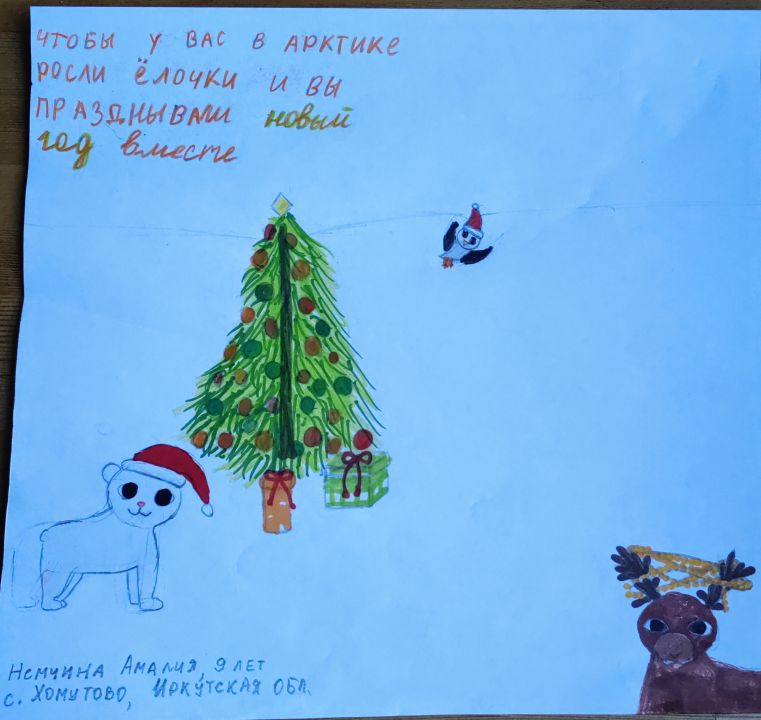 ЧТОБЫ У ВАС В АРКТИКЕ
РОСЛИ ЁЛОЧКИ И ВЫ
ПРАЗДНЫВАЛИ новый
год вместе
НЕМЧИНА АМАЛИЯ, 9 ЛЕТ
С. ХОМУТОВО, ИРКУТСКАЯ ОБЛ.